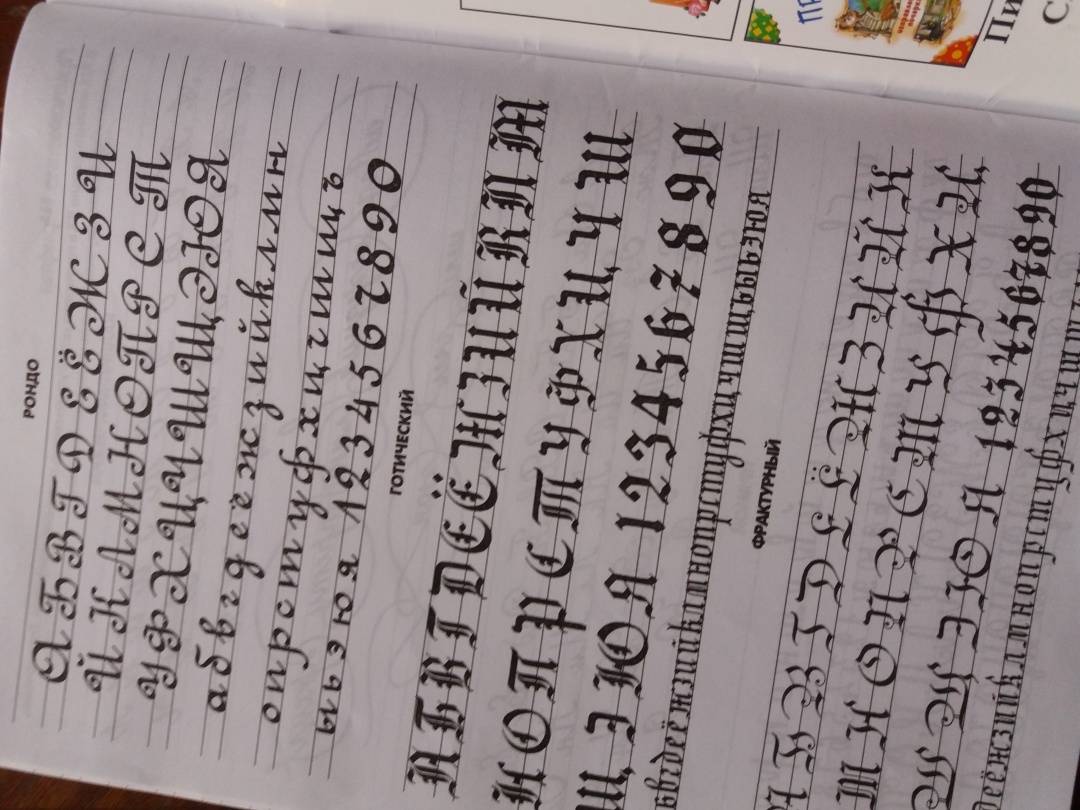 РОНДО
А Б В Г Д Е Ё Ж З И
Й К Л М Н О П Р С Т
У Ф Х Ц Ч Ш Щ Э Ю Я
а б в г д е ё ж з и й к л м н
о п р с т у ф х ц ч ш щ ъ
ы ь э ю я 1 2 3 4 5 6 7 8 9 0
ГОТИЧЕСКИЙ
А Б В Г Д Е Ё Ж З И Й К Л М
Н О П Р С Т У Ф Х Ц Ч Ш
Щ Э Ю Я 1 2 3 4 5 6 7 8 9 0
бвгдеёжзийклмнопрстуфхцчшщъыьэюя
ФРАКТУРНЫЙ
А Б В Г Д Е Ё Ж З И Й К
Л М Н О П Р С Т У Ф Х Ц
Ш Щ Э Ю Я 1 2 3 4 5 6 7 8 9 0
деёжзийклмнопрстуфхцчш
Пи